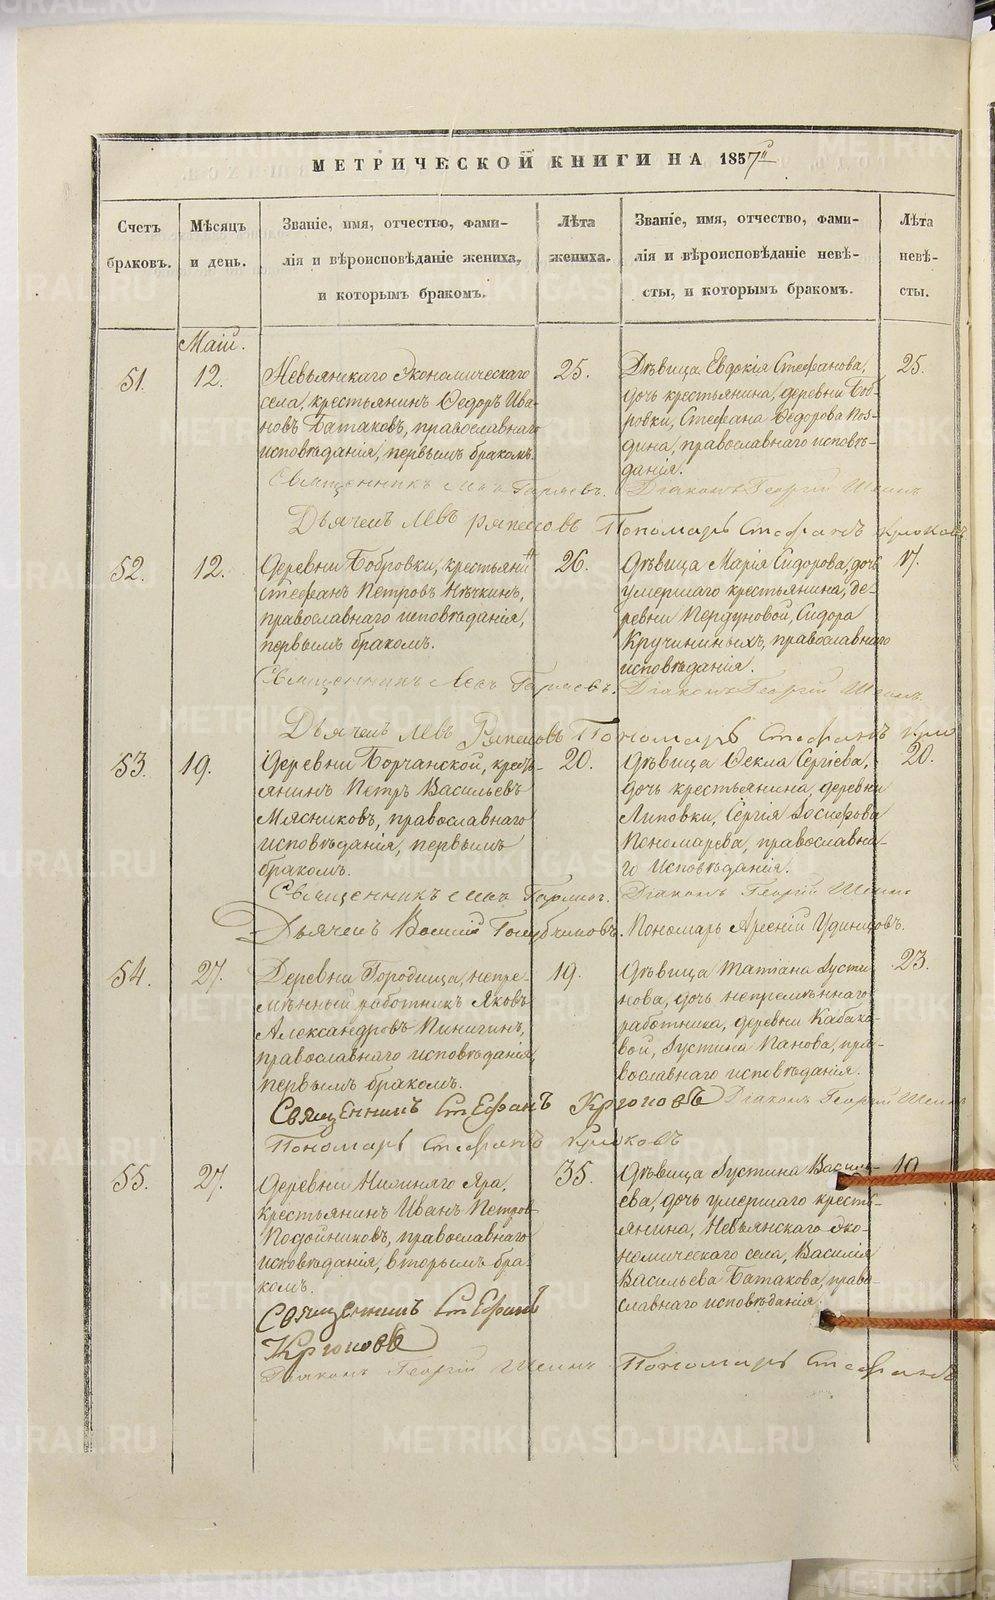 МЕТРИЧЕСКОЙ КНИГИ НА 1857й
Счетъ браковъ.
Мѣсяцъ и день.
Званіе, имя, отчество, фами-
лія и вѣроисповѣданіе жениха,
и которымъ бракомъ.
Лѣта жениха.
Званіе, имя, отчество, фами-
лія и вѣроисповѣданіе невѣ-
сты, и которымъ бракомъ.
Лѣта невѣ-
сты.
Маій.
51.
12.
Невьянскаго Экономическаго
села, крестьянинъ Ѳедоръ Ива-
новъ Батаковъ, православнаго
исповѣданія, первымъ бракомъ.
25.
Дѣвица Евдокія Стефанова,
дочь крестьянина, деревни Боб-
ровки, Стефана Ѳедорова Поз-
дина, православнаго исповѣ-
данія.
25.
Священникъ Левъ Гаряевъ.
Діаконъ Георгій
Дьячекъ Левъ Пономарь Стефанъ Крюковъ
52.
12.
Деревни Бобровки, крестьянинъ
Стефанъ Петровъ Нѣчкинъ,
православнаго исповѣданія,
первымъ бракомъ.
26.
Дѣвица Марія Сидорова, дочь
умершаго крестьянина, де-
ревни Пердуновой, Сидора
Кручининыхъ, православнаго
исповѣданія.
17.
Священникъ Левъ Гаряевъ.
Діаконъ Георгій
Дьячекъ Левъ Пономарь Стефанъ Крю
53.
19.
Деревни Борчанской, кресть-
янинъ Петръ Васильевъ
Мясниковъ, православнаго
исповѣданія, первымъ
бракомъ.
20.
Дѣвица Ѳекла Сергіева,
дочь крестьянина, деревни
Липовки, Сергія Іосифова
Пономарева, православна-
го исповѣданія.
20.
Священникъ Левъ
Діаконъ Георгій
Дьячекъ Василій Голубчиковъ. Пономарь Арсеній Удинцовъ.
54.
27.
Деревни Городища, непре-
мѣнный работникъ Яковъ
Александровъ Пинигинъ,
православнаго исповѣданія,
первымъ бракомъ.
19.
Дѣвица Татіана Іусти-
нова, дочь непремѣннаго
работника, деревни Кабако-
вой, Іустина Панова, пра-
вославнаго исповѣданія.
23.
Священникъ Стефанъ Крюковъ Діаконъ Георгій
Пономарь Стефанъ Крюковъ
55.
27.
Деревни Нижняго Яра,
крестьянинъ Иванъ Петровъ
Подойниковъ, православнаго
исповѣданія, вторымъ бра-
комъ.
35.
Дѣвица Іустина Василь-
ева, дочь умершаго кресть-
янина, Невьянскаго эко-
номическаго села, Василія
Васильева Батакова, право-
славнаго исповѣданія.
19.
Священникъ Стефанъ
Крюковъ
Діаконъ Георгій
Пономарь Стефанъ
METRIKI.GASO-URAL.RU